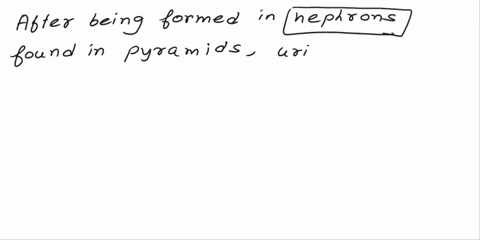 After being formed in nephrons
found in pyramids, uri